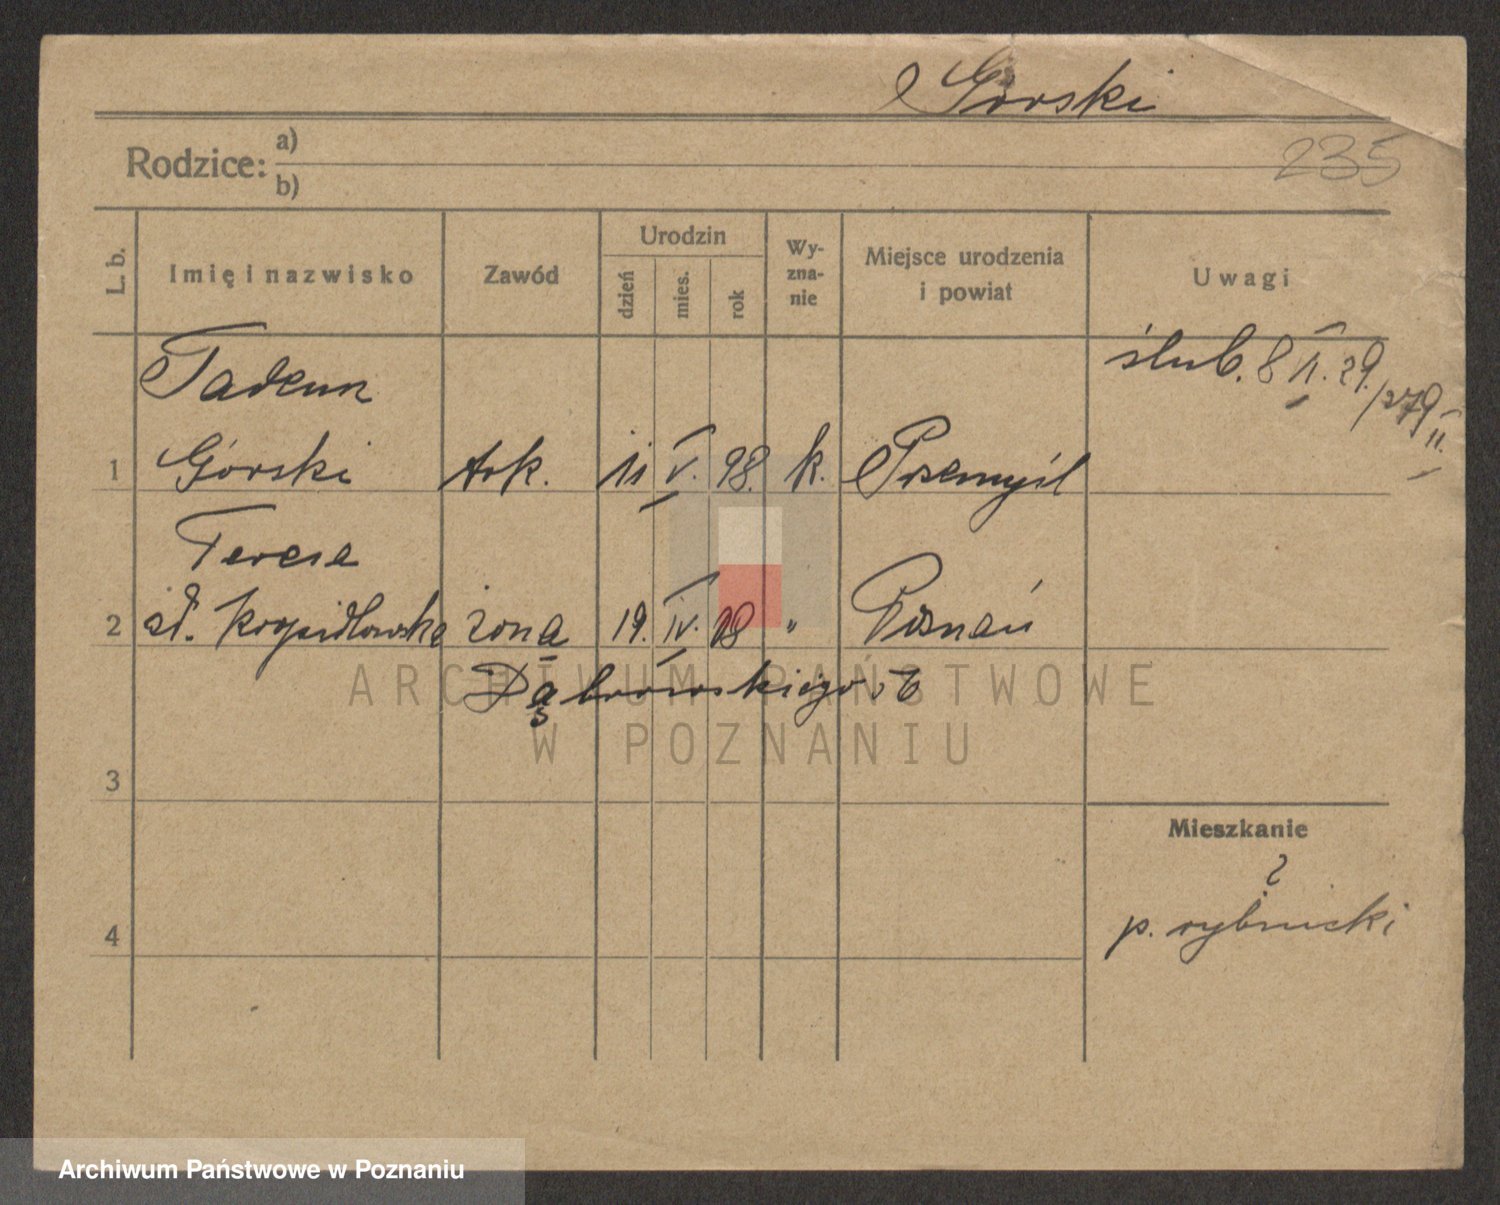 Górski
235
Rodzice: a)
b)
L. b.
Imię i nazwisko
Zawód
Urodzin
dzień
mies.
rok
Wy-
zna-
nie
Miejsce urodzenia
i powiat
Uwagi
ślub. 8 II. 29. /279 II.
Tadeusz
1 Górski Ark. 11 V. 98. k. Przemyśl
Teresa
2 żona 19. IV. " Poznań
Dąbrowskiego
3
4
Mieszkanie
?
p. rybnicki
ARCHIWUM PAŃSTWOWE
W POZNANIU
Archiwum Państwowe w Poznaniu